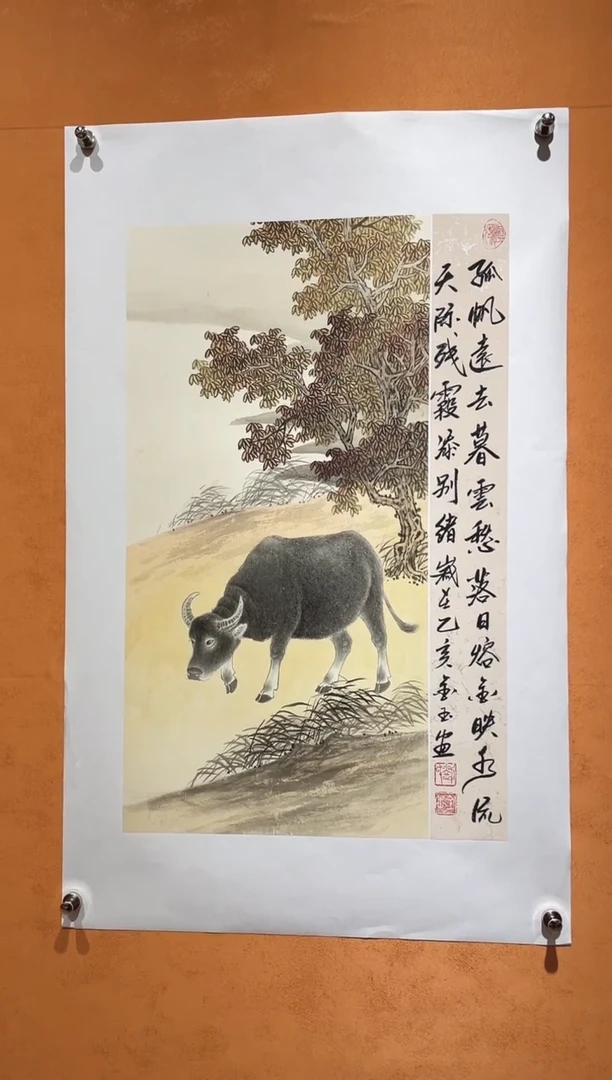 孤帆遠去暮雲愁落日熔金映水流
天际残霞添别绪歲在乙亥金玉画